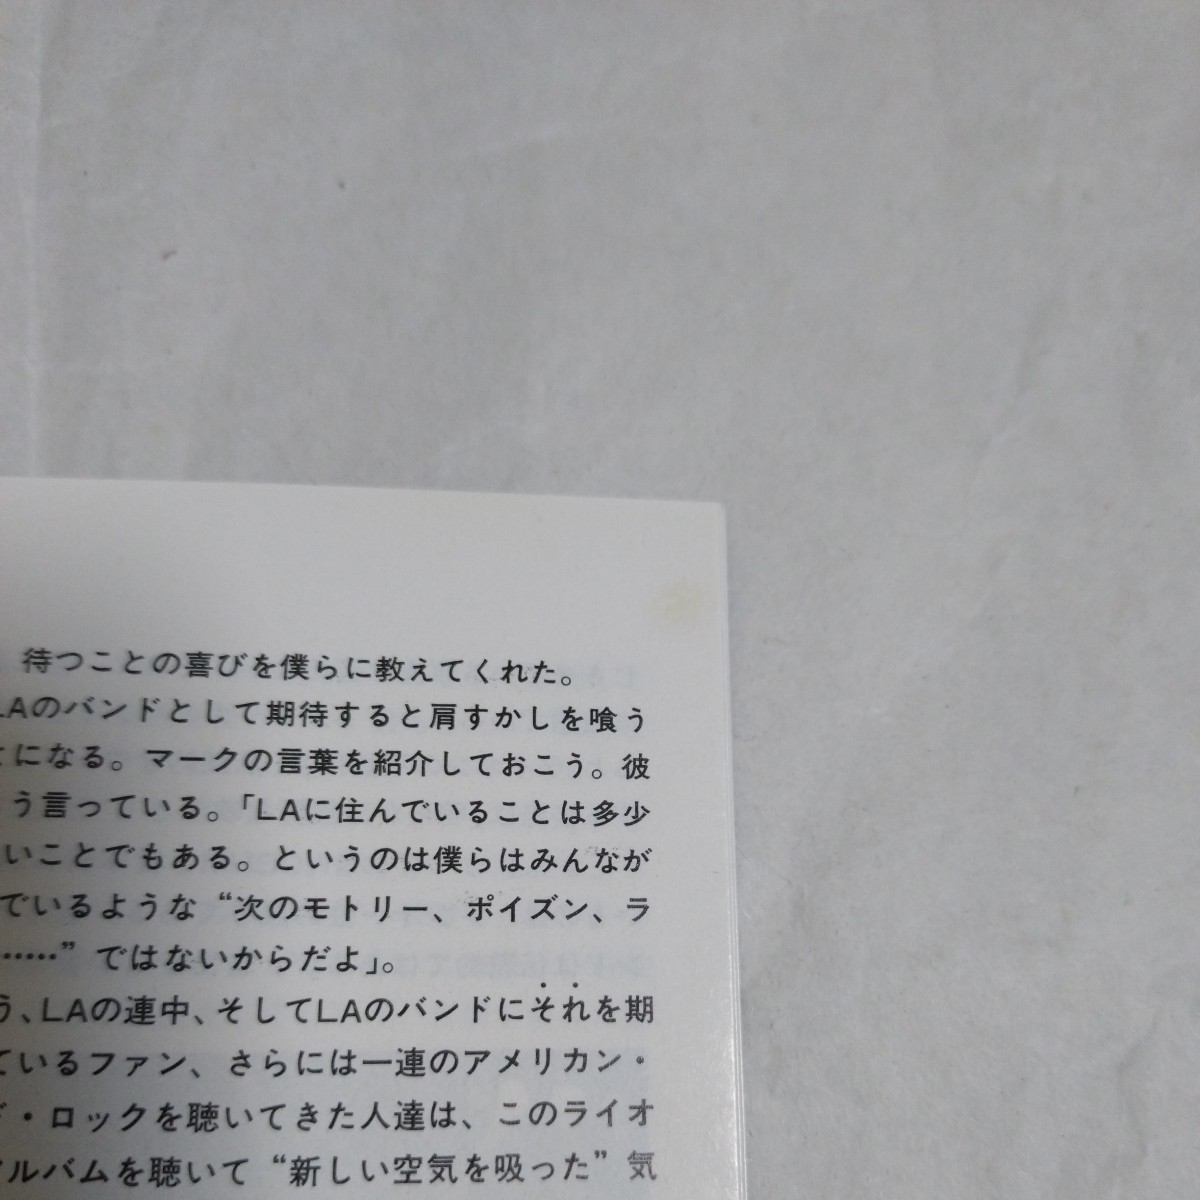 待つことの喜びを僕らに教えてくれた。
LAのバンドとして期待すると肩すかしを喰う
とになる。マークの言葉を紹介しておこう。彼
う言っている。「LAに住んでいることは多少
いことでもある。というのは僕らはみんなが
でいるような“次のモトリー、ポイズン、ラ
……”ではないからだよ」。
う、LAの連中、そしてLAのバンドにそれを期
ているファン、さらには一連のアメリカン・
ド・ロックを聴いてきた人達は、このライオ
アルバムを聴いて“新しい空気を吸った”気